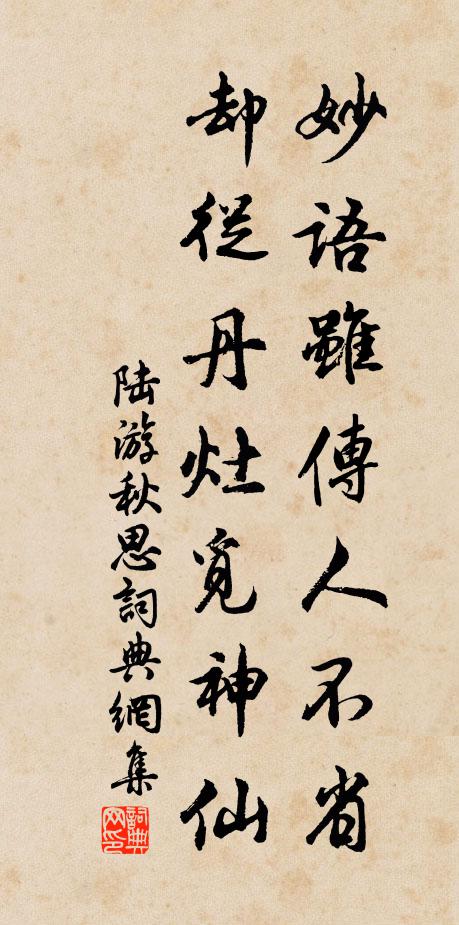 妙語雖傳人不省
却從丹灶覓神仙
陆游秋思詞典網集
詞典網印